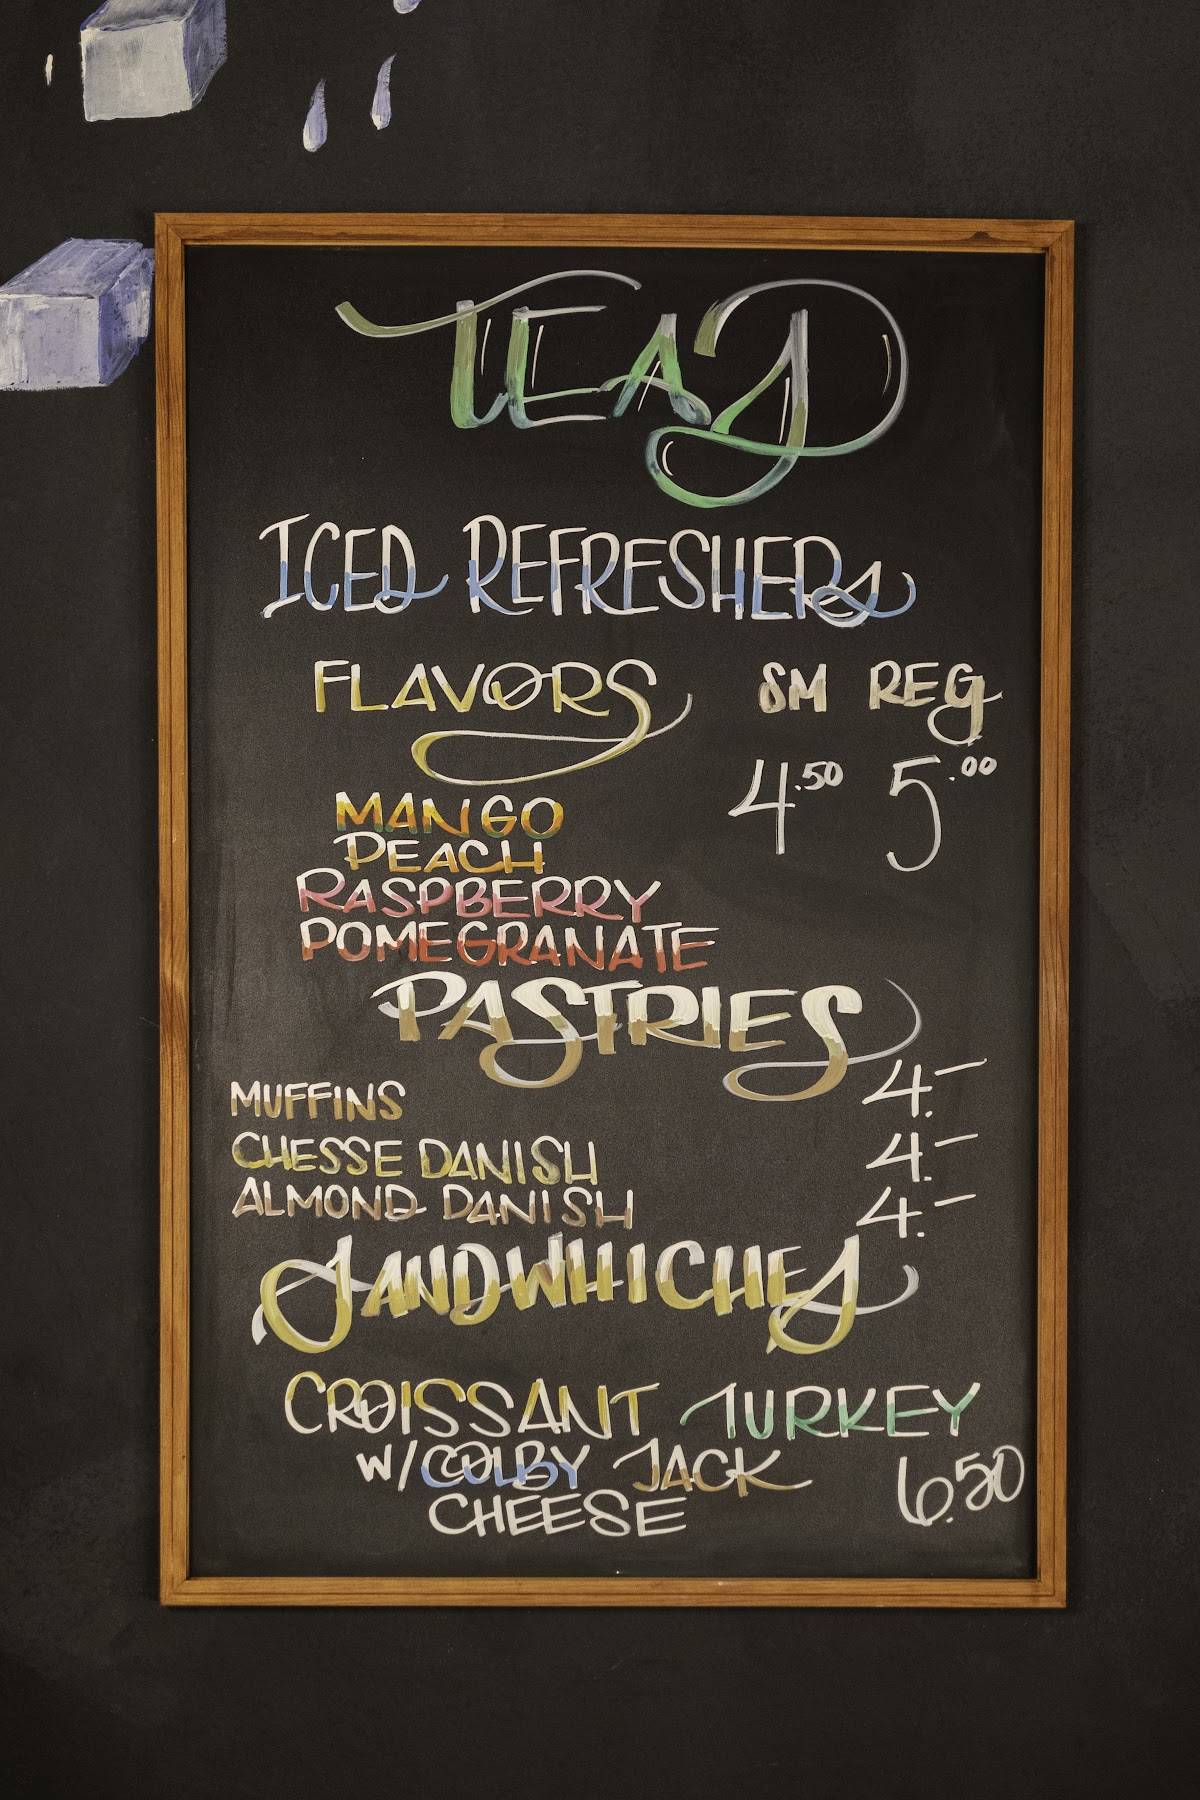 TEAS
ICED REFRESHERS
FLAVORS SM REG
4.50 5.00
MANGO
PEACH
RASPBERRY
POMEGRANATE
PASTRIES
MUFFINS 4.-
CHESSE DANISH 4.-
ALMOND DANISH 4.-
SANDWHICHES
CROISSANT TURKEY
W/COLBY JACK 6.50
CHEESE